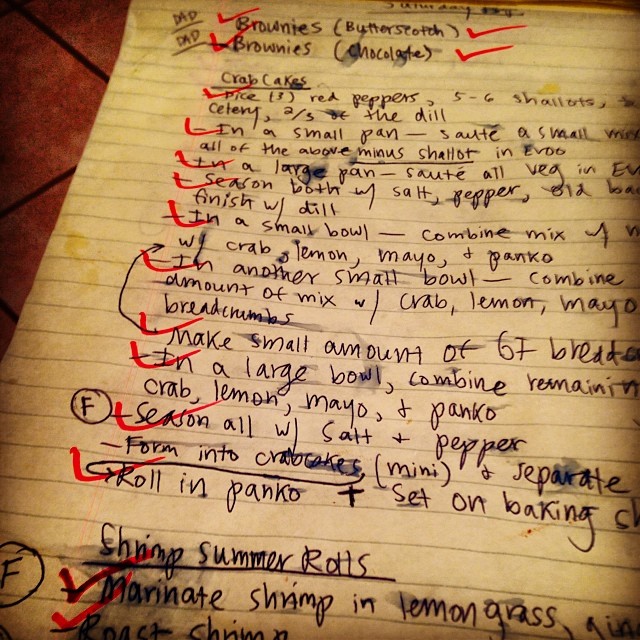 Saturday
DAD Brownies (Butterscotch)
DAD Brownies (Chocolate)
Crab Cakes
Dice (3) red peppers, 5-6 shallots,
celery, 2/3 of the dill
- In a small pan - sauté a small mix
all of the above minus shallot in Evoo
- In a large pan - sauté all veg in Ev
- Season both w/ salt, pepper, old ba
finish w/ dill
- In a small bowl - combine mix w/
w/ crab, lemon, mayo, + panko
- In another small bowl - combine
amount of mix w/ crab, lemon, mayo
breadcrumbs
- Make small amount of GF bread
- In a large bowl, combine remainin
crab, lemon, mayo, + panko
F - Season all w/ Salt + pepper
- Form into crabcakes (mini) + separate
Roll in panko + Set on baking sh
Shrimp Summer Rolls
F - Marinate shrimp in lemongrass,
- Roast shrimp